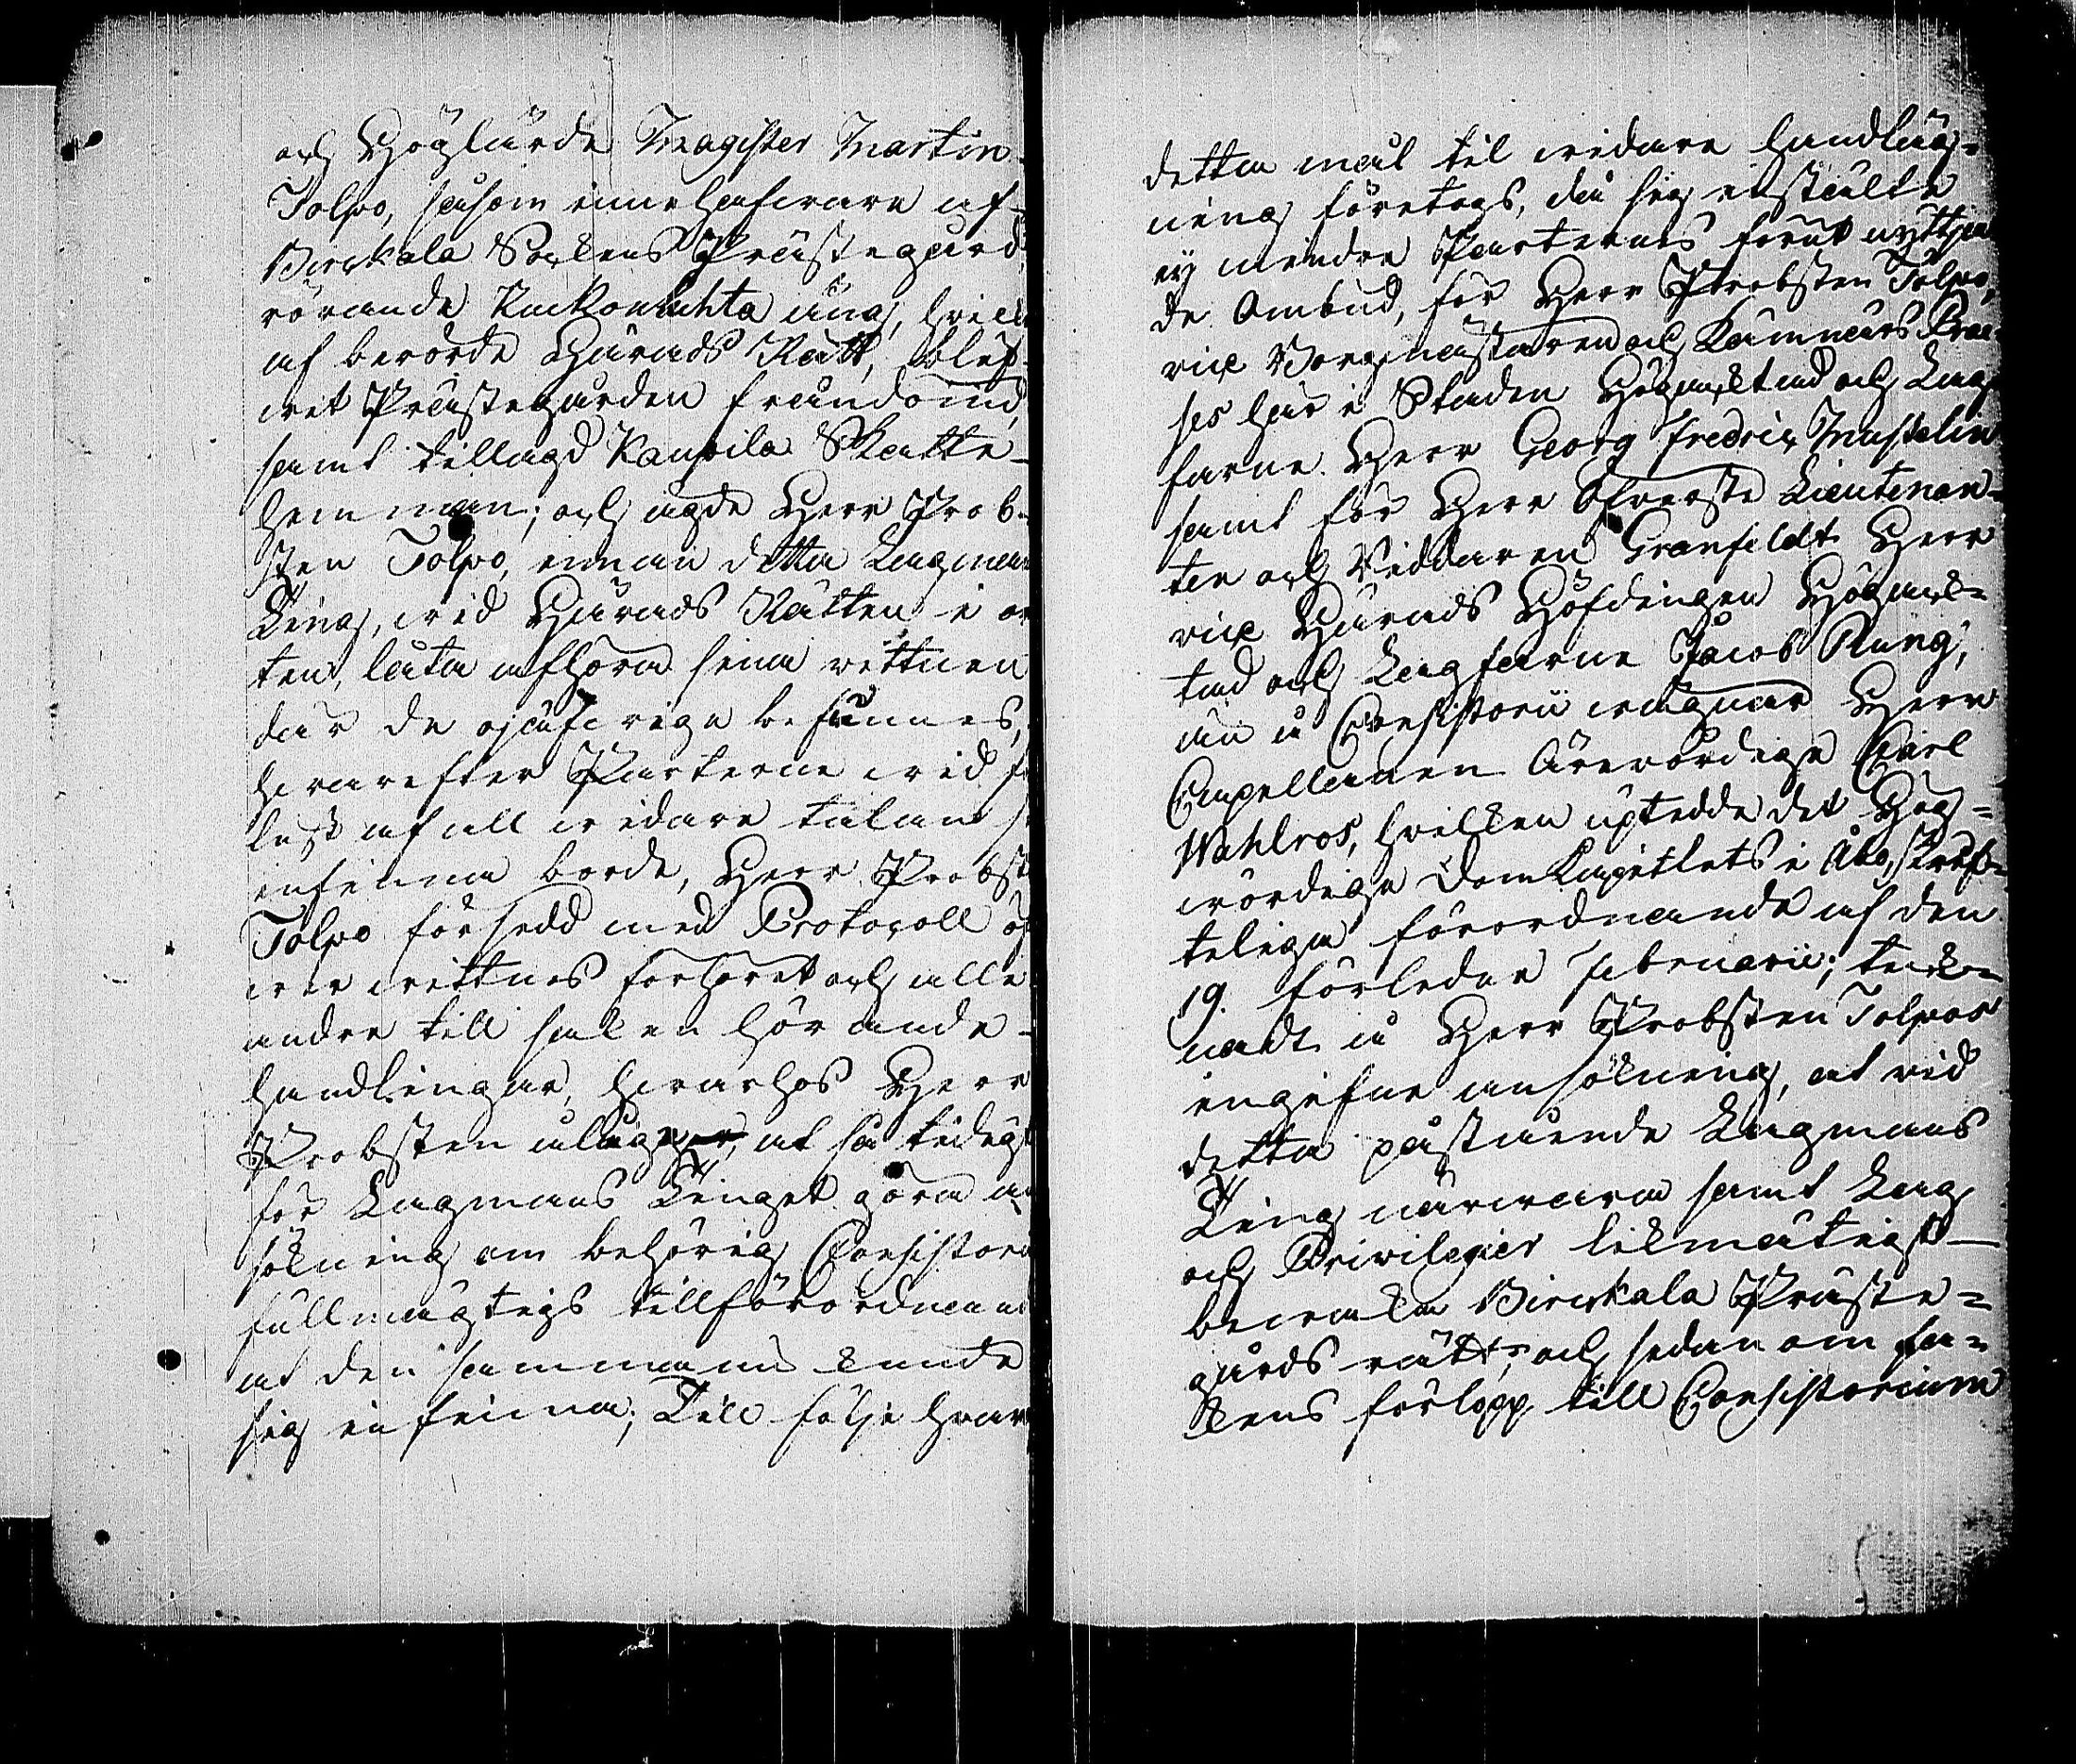 och Höglärde Magister Martin
Tolpo, såsom innehafvare af
Birckala Sockens Prästegård
rörande Kuckonuhta äng, hvilk
af berörde Härads Rätt, blef-
vit Prästegården fråndömd,
samt tillagd Kaupila Skatte-
hemman; och ägde Herr Prob-
sten Tolpo, innan detta Lagmans
Ting, vid Härads Rätten i or
ten, låta afhöra sina vittnen
där de ojäfvige befunnes,
hvarefter Parterne vid f
lust af all vidare talan s
infinna borde, Herr Probst
Tolpo försedd med Protocoll öf
ver vittnes förhöret och alle
andre till saken hörande
handlingar, hvarhos Herr
Probsten ålåg, at så tidigt
för Lagmans Tinget göra an
sökning om behörig Consistorii
fullmägtigs tillförordnan
at den samma kunde
sig infinna; Till följe hvar
detta mål til vidare handläg-
ning företogs, då sig instälte
ej mindre Parternes förut nyttja
de Ombud, för Herr Probsten Tolpo,
vice Borgmästaren och Kämnärs Prae-
ses här i Staden Högacktad och Lag
farne Herr Georg Fredric Mustelin
samt för Herr Öfverste Lieutenan-
ten och Riddaren Granfeldt Herr
vice Härads Höfdingen Högack-
tad och Lagfarne Jacob Rung,
än å Consistorii vägnar Herr
Capellanen Ärevördige Carl
Wahlros, hvilken uptedde det Hög-
vördige DomKapitlets i Åbo, skrif-
telige förordnande af den
19. förledne Februarii; teck-
nadt å Herr Probsten Tolpos
ingifne ansökning, at vid
detta påstående Lagmans
Ting närvara samt Lag
och Privilegier likmätigst
bevaka Birckala Präste-
gårds rätt, och sedan om sa-
kens förlopp till Consistorium